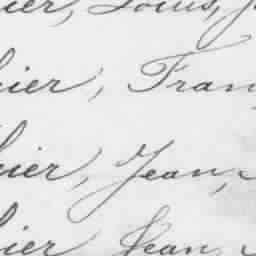 ier, Louis, J
ier, Fran
ier, Jean,
ier Jean,